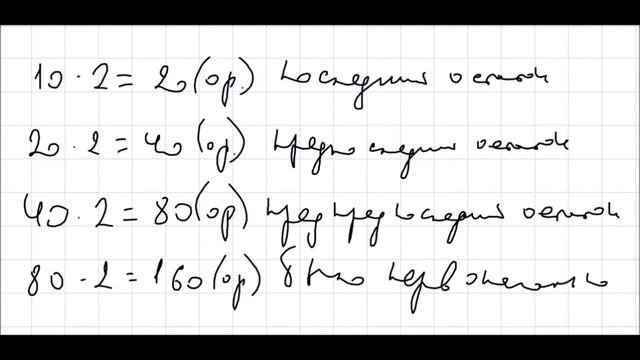 10 · 2 = 20 (ор.) последний остаток
20 · 2 = 40 (ор.) предпоследний остаток
40 · 2 = 80 (ор) предпредпоследний остаток
80 · 2 = 160 (ор) было первоначально